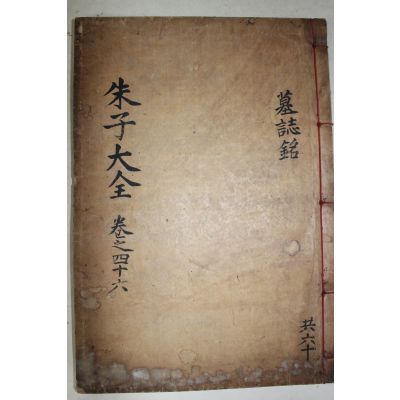 朱子大全 卷之四十六
墓誌銘
共六十